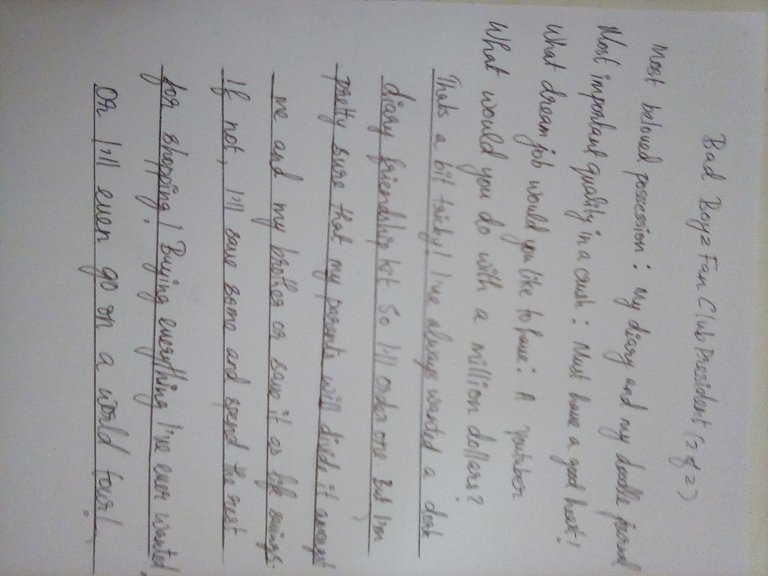 Bad Boyz Fan Club President (2 of 2)
Most beloved possession : My diary and my doodle friend
Most important quality in a crush : Must have a good heart!
What dream job would you like to have : A Youtuber
What would you do with a million dollars?
Thats a bit tricky! I've always wanted a dork
diary friendship kit so I'll order one. But I'm
pretty sure that my parents will divide it amongst
me and my brother or save it as life savings.
If not, I'll save some and spend the rest
for shopping! Buying everything I've ever wanted
or I'll even go on a world tour!